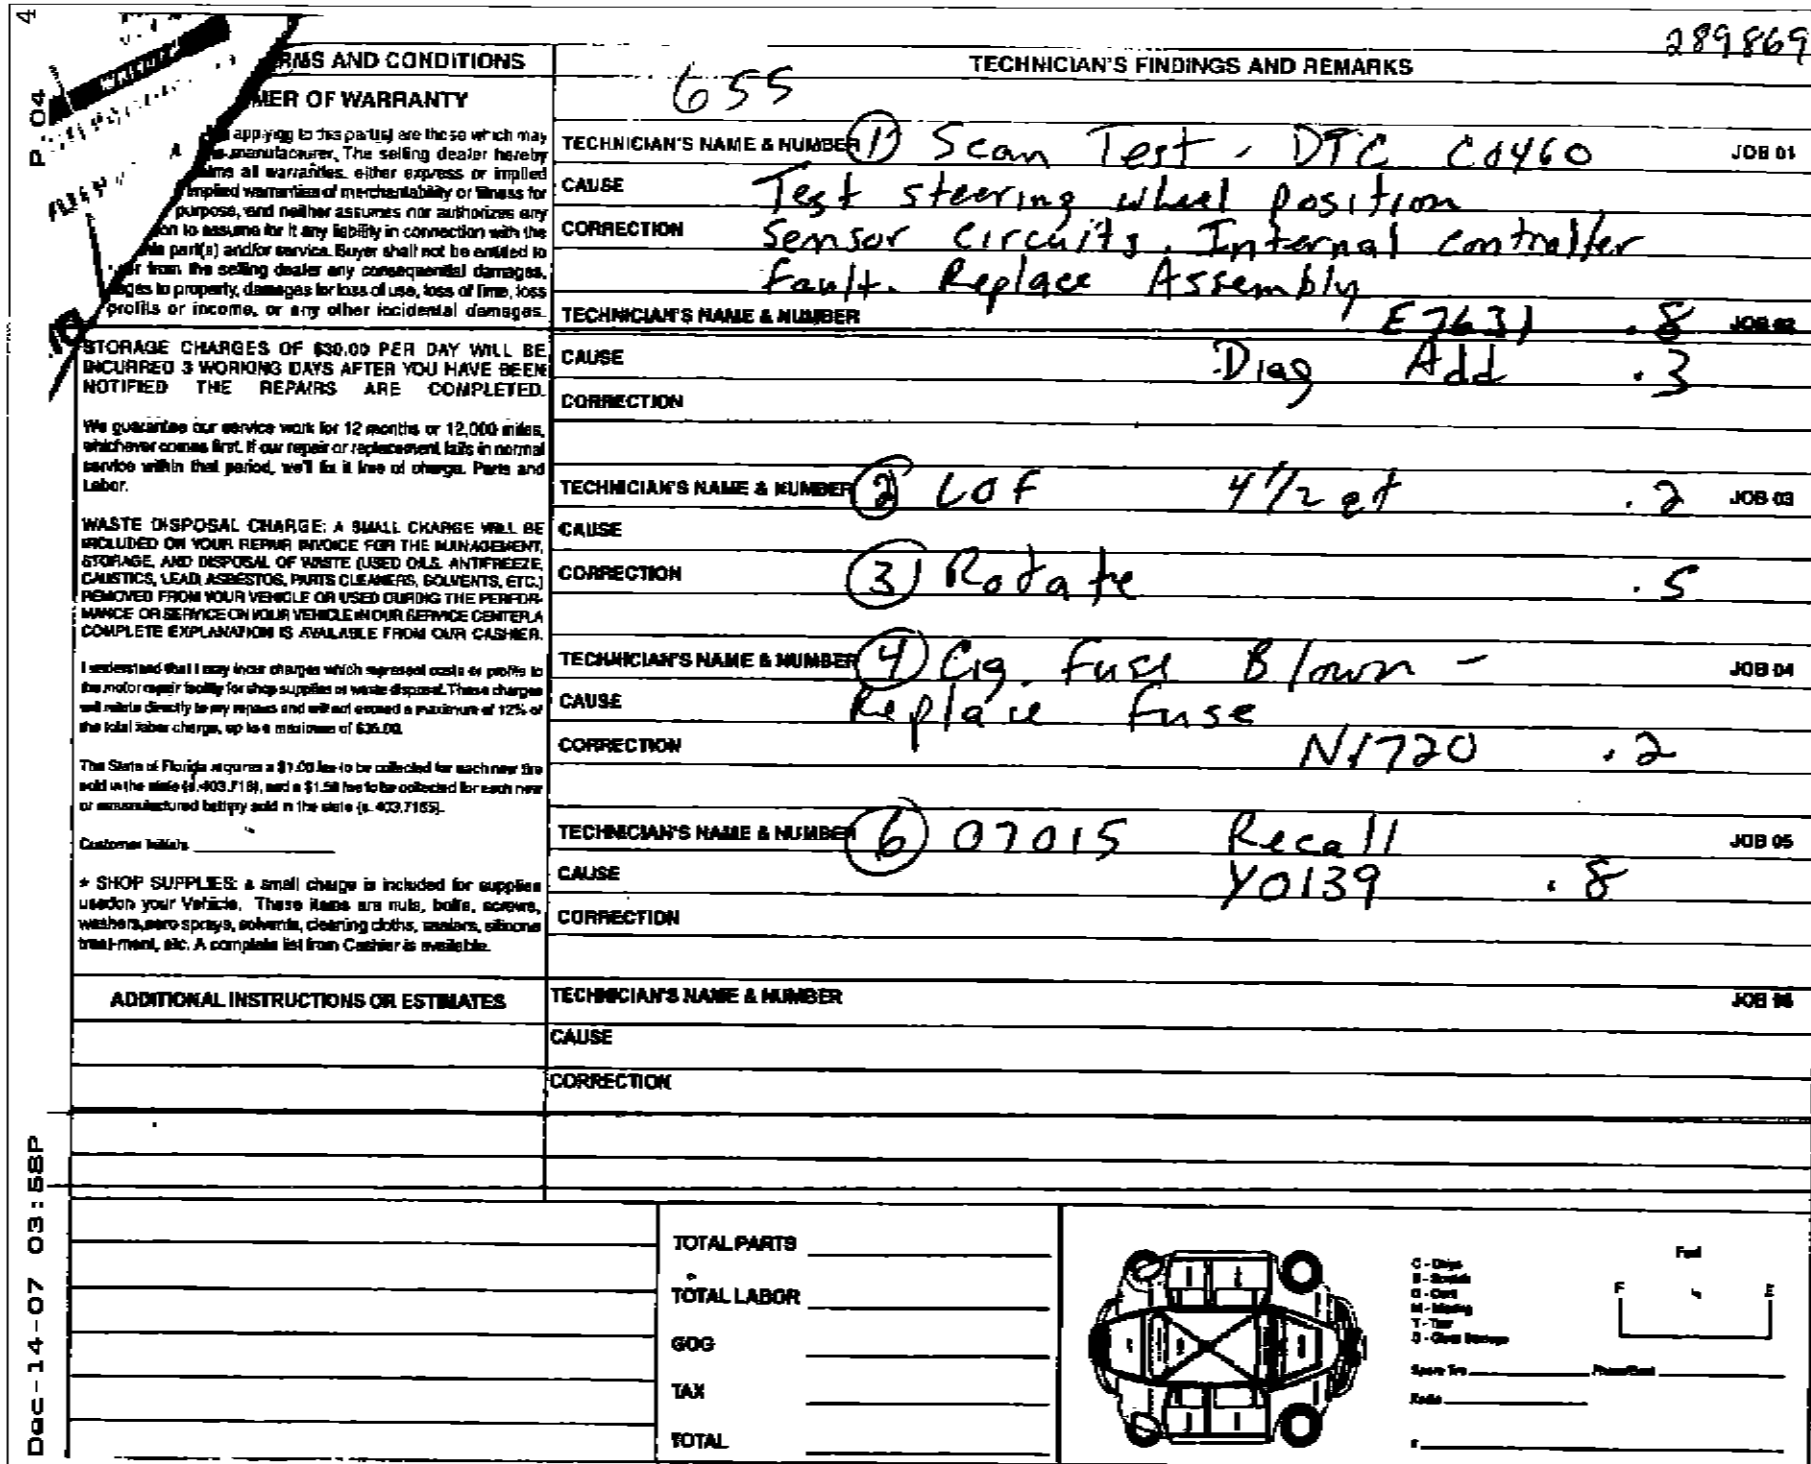 4
P 04
289869
RMS AND CONDITIONS
MER OF WARRANTY
applying to this part(s) are those which may
manufacturer. The selling dealer hereby
all warranties, either express or implied
implied warranties of merchantability or fitness for
purpose, and neither assumes nor authorizes any
on to assume for it any liability in connection with the
part(s) and/or service. Buyer shall not be entitled to
from the selling dealer any consequential damages,
ges to property, damages for loss of use, loss of time, loss
profits or income, or any other incidental damages.
STORAGE CHARGES OF $30.00 PER DAY WILL BE
INCURRED 3 WORKING DAYS AFTER YOU HAVE BEEN
NOTIFIED THE REPAIRS ARE COMPLETED.
We guarantee our service work for 12 months or 12,000 miles,
whichever comes first. If our repair or replacement fails in normal
service within that period, we'll fix it free of charge. Parts and
Labor.
WASTE DISPOSAL CHARGE: A SMALL CHARGE WILL BE
INCLUDED ON YOUR REPAIR INVOICE FOR THE MANAGEMENT,
STORAGE, AND DISPOSAL OF WASTE (USED OILS, ANTIFREEZE,
CAUSTICS, LEAD, ASBESTOS, PARTS CLEANERS, SOLVENTS, ETC.)
REMOVED FROM YOUR VEHICLE OR USED DURING THE PERFOR-
MANCE OR SERVICE ON YOUR VEHICLE IN OUR SERVICE CENTER. A
COMPLETE EXPLANATION IS AVAILABLE FROM OUR CASHIER.
I understand that I may incur charges which represent costs or profits to
the motor repair facility for shop supplies or waste disposal. These charges
will relate directly to my repairs and will not exceed a maximum of 12% of
the total labor charge, up to a maximum of $35.00.
The State of Florida requires a $1.00 fee to be collected for each new tire
sold in the state (s. 403.718), and a $1.50 fee to be collected for each new
or remanufactured battery sold in the state (s. 403.7185).
Customer Initials
* SHOP SUPPLIES: a small charge is included for supplies
usedon your Vehicle. These items are nuts, bolts, screws,
washers, aero sprays, solvents, cleaning cloths, sealers, silicone
treat-ment, etc. A complete list from Cashier is available.
ADDITIONAL INSTRUCTIONS OR ESTIMATES
TECHNICIAN'S FINDINGS AND REMARKS
655
TECHNICIAN'S NAME & NUMBER 1 Scan Test - DTC C0460 JOB 01
CAUSE Test steering wheel position
CORRECTION Sensor circuits. Internal controller
Fault. Replace Assembly
TECHNICIAN'S NAME & NUMBER E7631 .8 JOB 02
CAUSE Diag Add .3
CORRECTION
TECHNICIAN'S NAME & NUMBER 2 LOF 4 1/2 qt .2 JOB 03
CAUSE
CORRECTION 3 Rotate .5
TECHNICIAN'S NAME & NUMBER 4 Cig. Fuse Blown - JOB 04
CAUSE Replace Fuse
CORRECTION N1720 .2
TECHNICIAN'S NAME & NUMBER 6 07015 Recall JOB 05
CAUSE Y0139 .8
CORRECTION
TECHNICIAN'S NAME & NUMBER JOB 06
CAUSE
CORRECTION
TOTAL PARTS
TOTAL LABOR
GOG
TAX
TOTAL
C - Chips
S - Scratch
D - Dent
M - Missing
T - Tear
G - Glass Damage
Fuel
F E
Spare Tire
Radio
Dec-14-07 03:58P